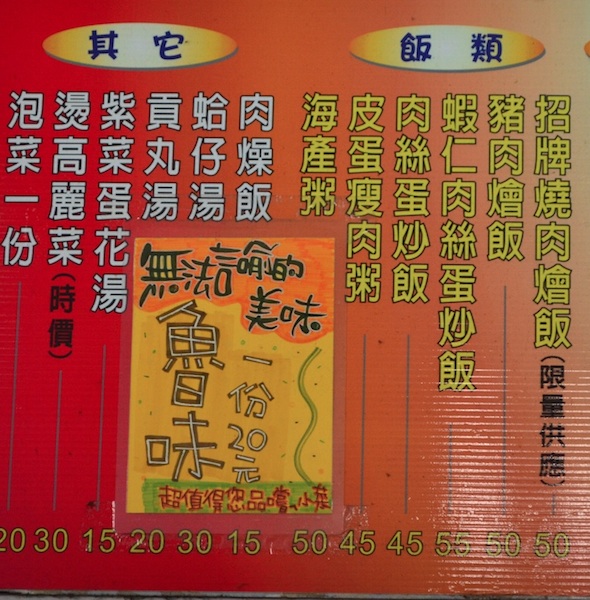 飯類
招牌燒肉燴飯(限量供應) 50
豬肉燴飯 50
蝦仁肉絲蛋炒飯 55
肉絲蛋炒飯 45
皮蛋瘦肉粥 45
海產粥 50
其它
肉燥飯 15
蛤仔湯 30
貢丸湯 20
紫菜蛋花湯 15
燙高麗菜(時價) 30
泡菜一份 20
無法言喻的
美味
魯味
一份20元
超值得您品嚐ㄟ小菜